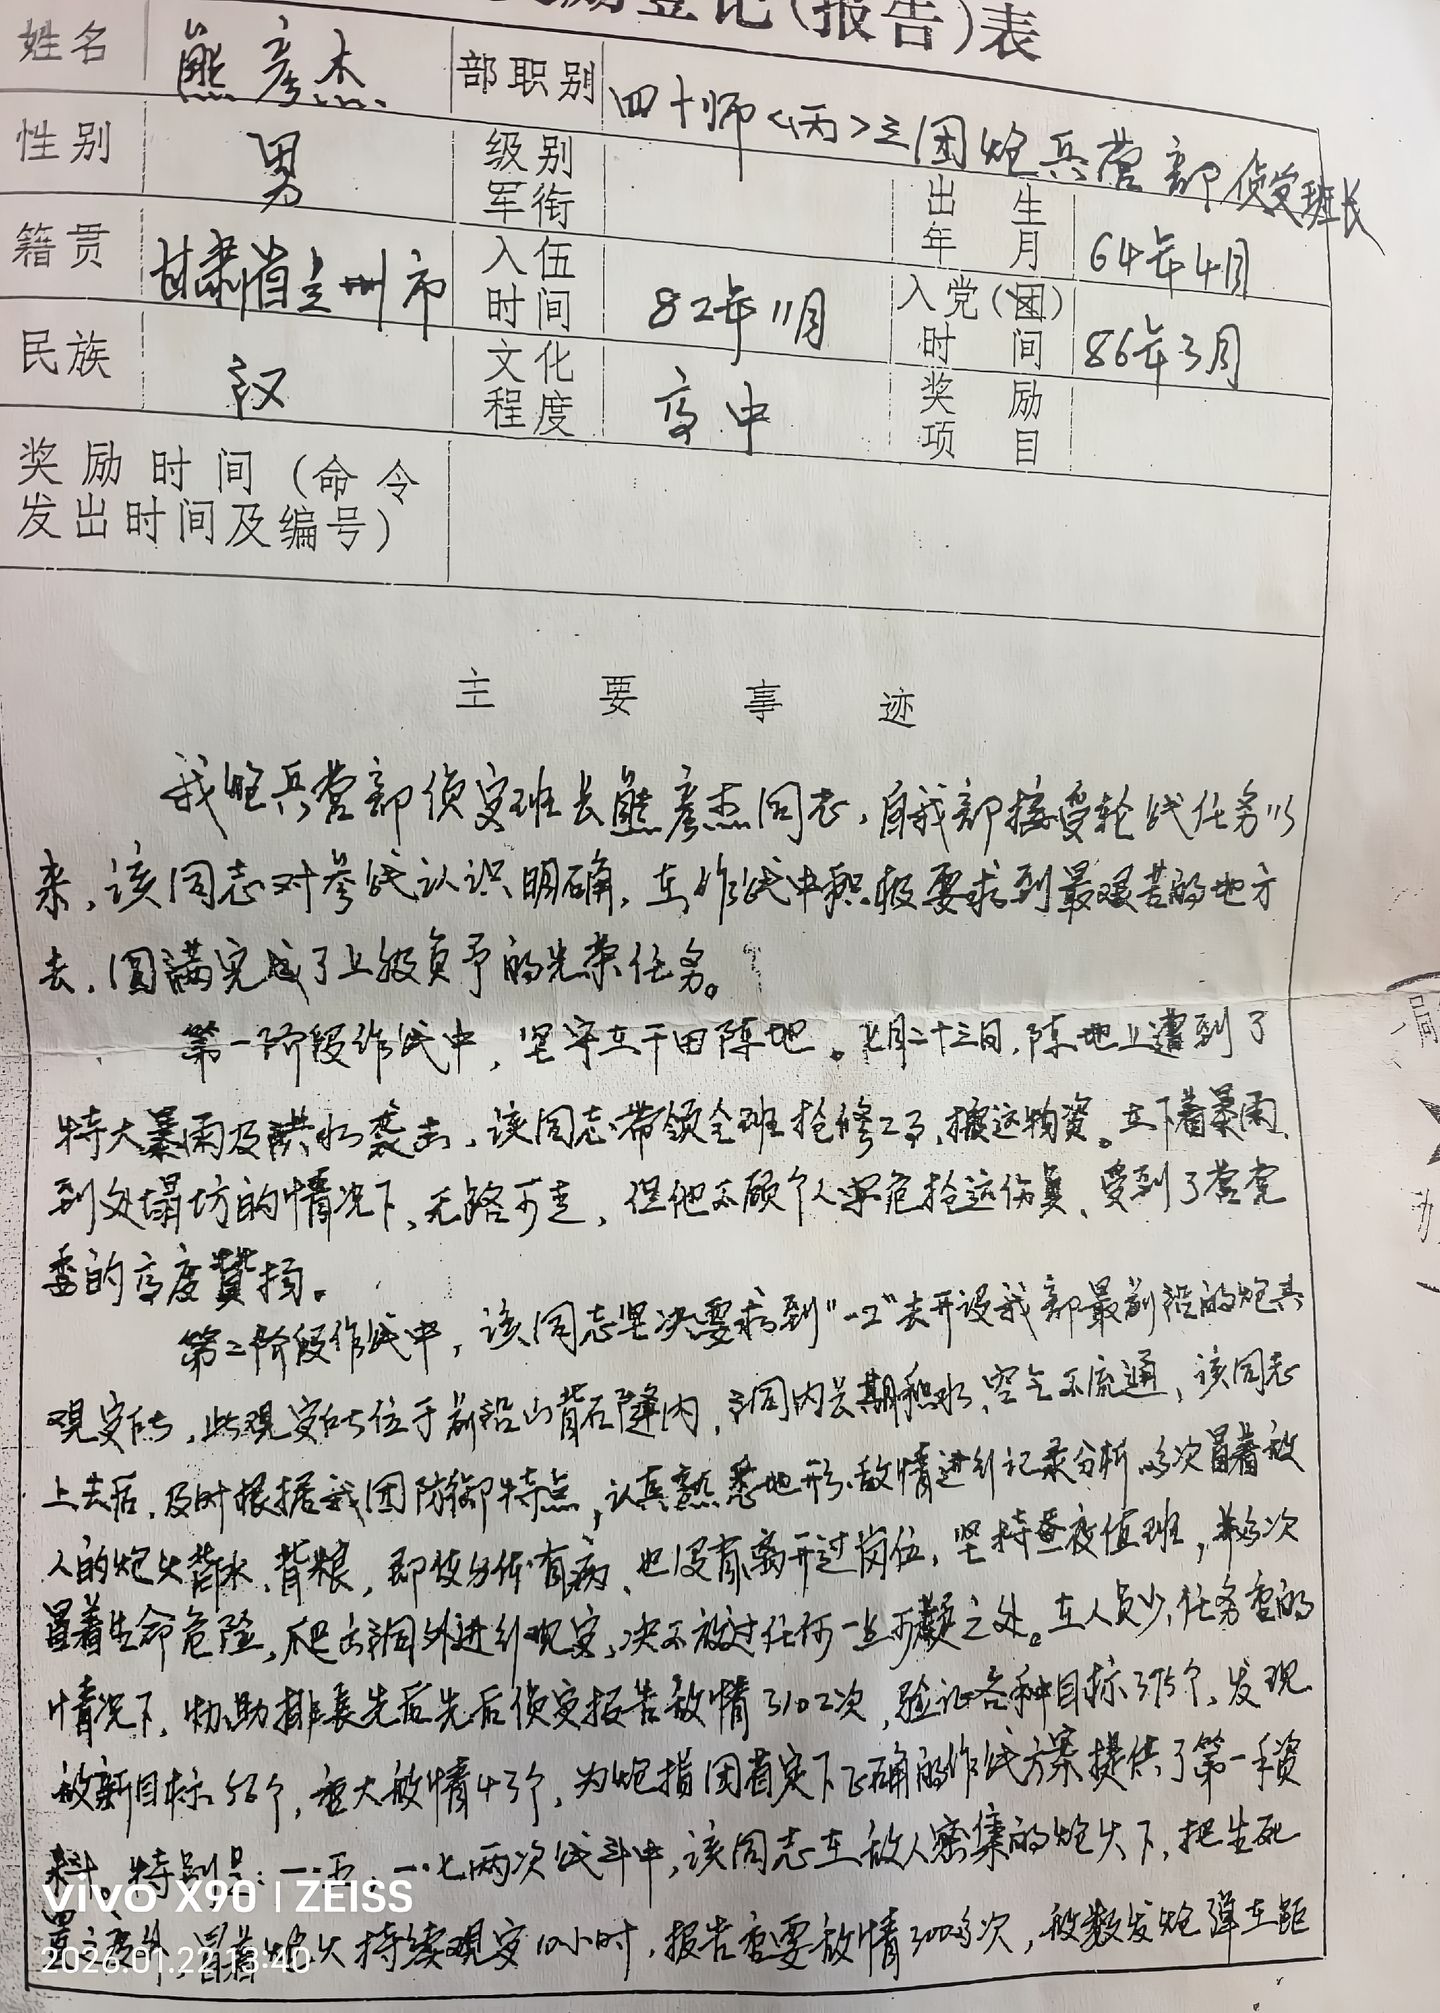 登记(报告)表
姓名 熊彦杰 部职别 四十师<丙>三团炮兵营部侦察班长
性别 男 级别军衔 出生年月 64年4月
籍贯 甘肃省兰州市 入伍时间 82年11月 入党(团)时间 86年3月
民族 汉 文化程度 高中 奖励项目
奖励时间(命令
发出时间及编号)
主要事迹
我炮兵营部侦察班长熊彦杰同志,自我部接受轮战任务以
来,该同志对参战认识明确,在作战中积极要求到最艰苦的地方
去,圆满完成了上级负予的光荣任务。
第一阶段作战中,坚守在干田阵地。七月二十三日,阵地上遭到了
特大暴雨及洪水袭击,该同志带领全班抢修工事,搬运物资。在下着暴雨、
到处塌坊的情况下,无路可走,但他不顾个人安危抢运伤员、受到了营党
委的高度赞扬。
第二阶段作战中,该同志坚决要求到"一2"去开设我部最前沿的炮兵
观察所,此观察所位于前沿山背石缝内,洞内长期积水,空气不流通,该同志
上去后,及时根据我团防御特点,认真熟悉地形、敌情进行记录分析,多次冒着敌
人的炮火背水、背粮,即使身体有病、也没有离开过岗位,坚持昼夜值班,并多次
冒着生命危险,爬出洞外进行观察,决不放过任何一点可疑之处。在人员少,任务重的
情况下,协助排长先后先后侦察报告敌情3102次,验证各种目标375个,发现
敌新目标56个,重大敌情43个,为炮指团首定下正确的作战方案提供了第一手资
料。特别是:一.五、一.七两次战斗中,该同志在敌人密集的炮火下,把生死
置之度外,冒着炮火持续观察10小时,报告重要敌情300多次,敌数发炮弹在距
vivo X90 | ZEISS
2026.01.22 13:40